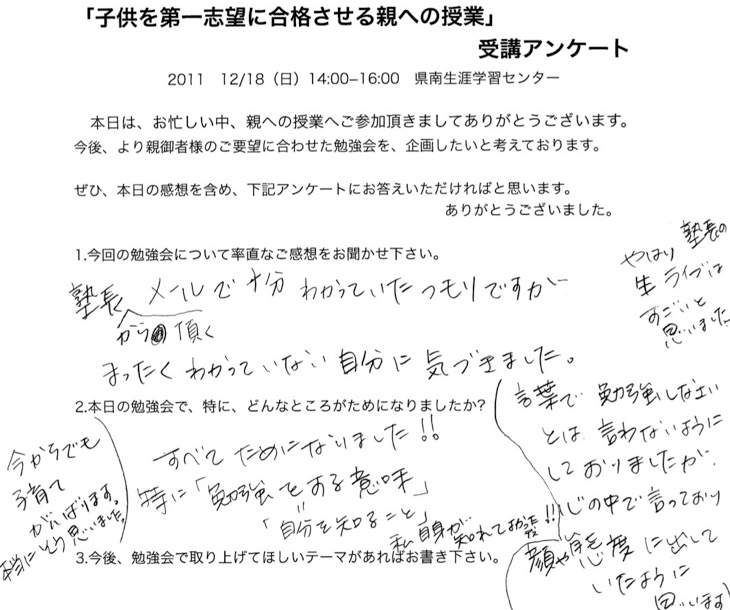 「子供を第一志望に合格させる親への授業」
受講アンケート
2011　12/18（日）14:00–16:00　県南生涯学習センター
本日は、お忙しい中、親への授業へご参加頂きましてありがとうございます。
今後、より親御者様のご要望に合わせた勉強会を、企画したいと考えております。
ぜひ、本日の感想を含め、下記アンケートにお答えいただければと思います。
ありがとうございました。
1.今回の勉強会について率直なご感想をお聞かせ下さい。
塾長 メールで 十分 わかっていた つもりですが
から 頂く
まったく わかっていない 自分に 気づきました。
やはり 塾長の
生ライブは
すごいと
思いました
2.本日の勉強会で、特に、どんなところがためになりましたか?
すべて ためになりました!!
特に「勉強をする意味」
"
「自分を知ること」
私自身が 知れてよかったです!!
今からでも
子育て
がんばります。
本当にそう思いました。
言葉で 勉強しなさい
とは 言わないように
しておりましたが
心の中で言っており
顔や態度に出して
いたように
思います
3.今後、勉強会で取り上げてほしいテーマがあればお書き下さい。